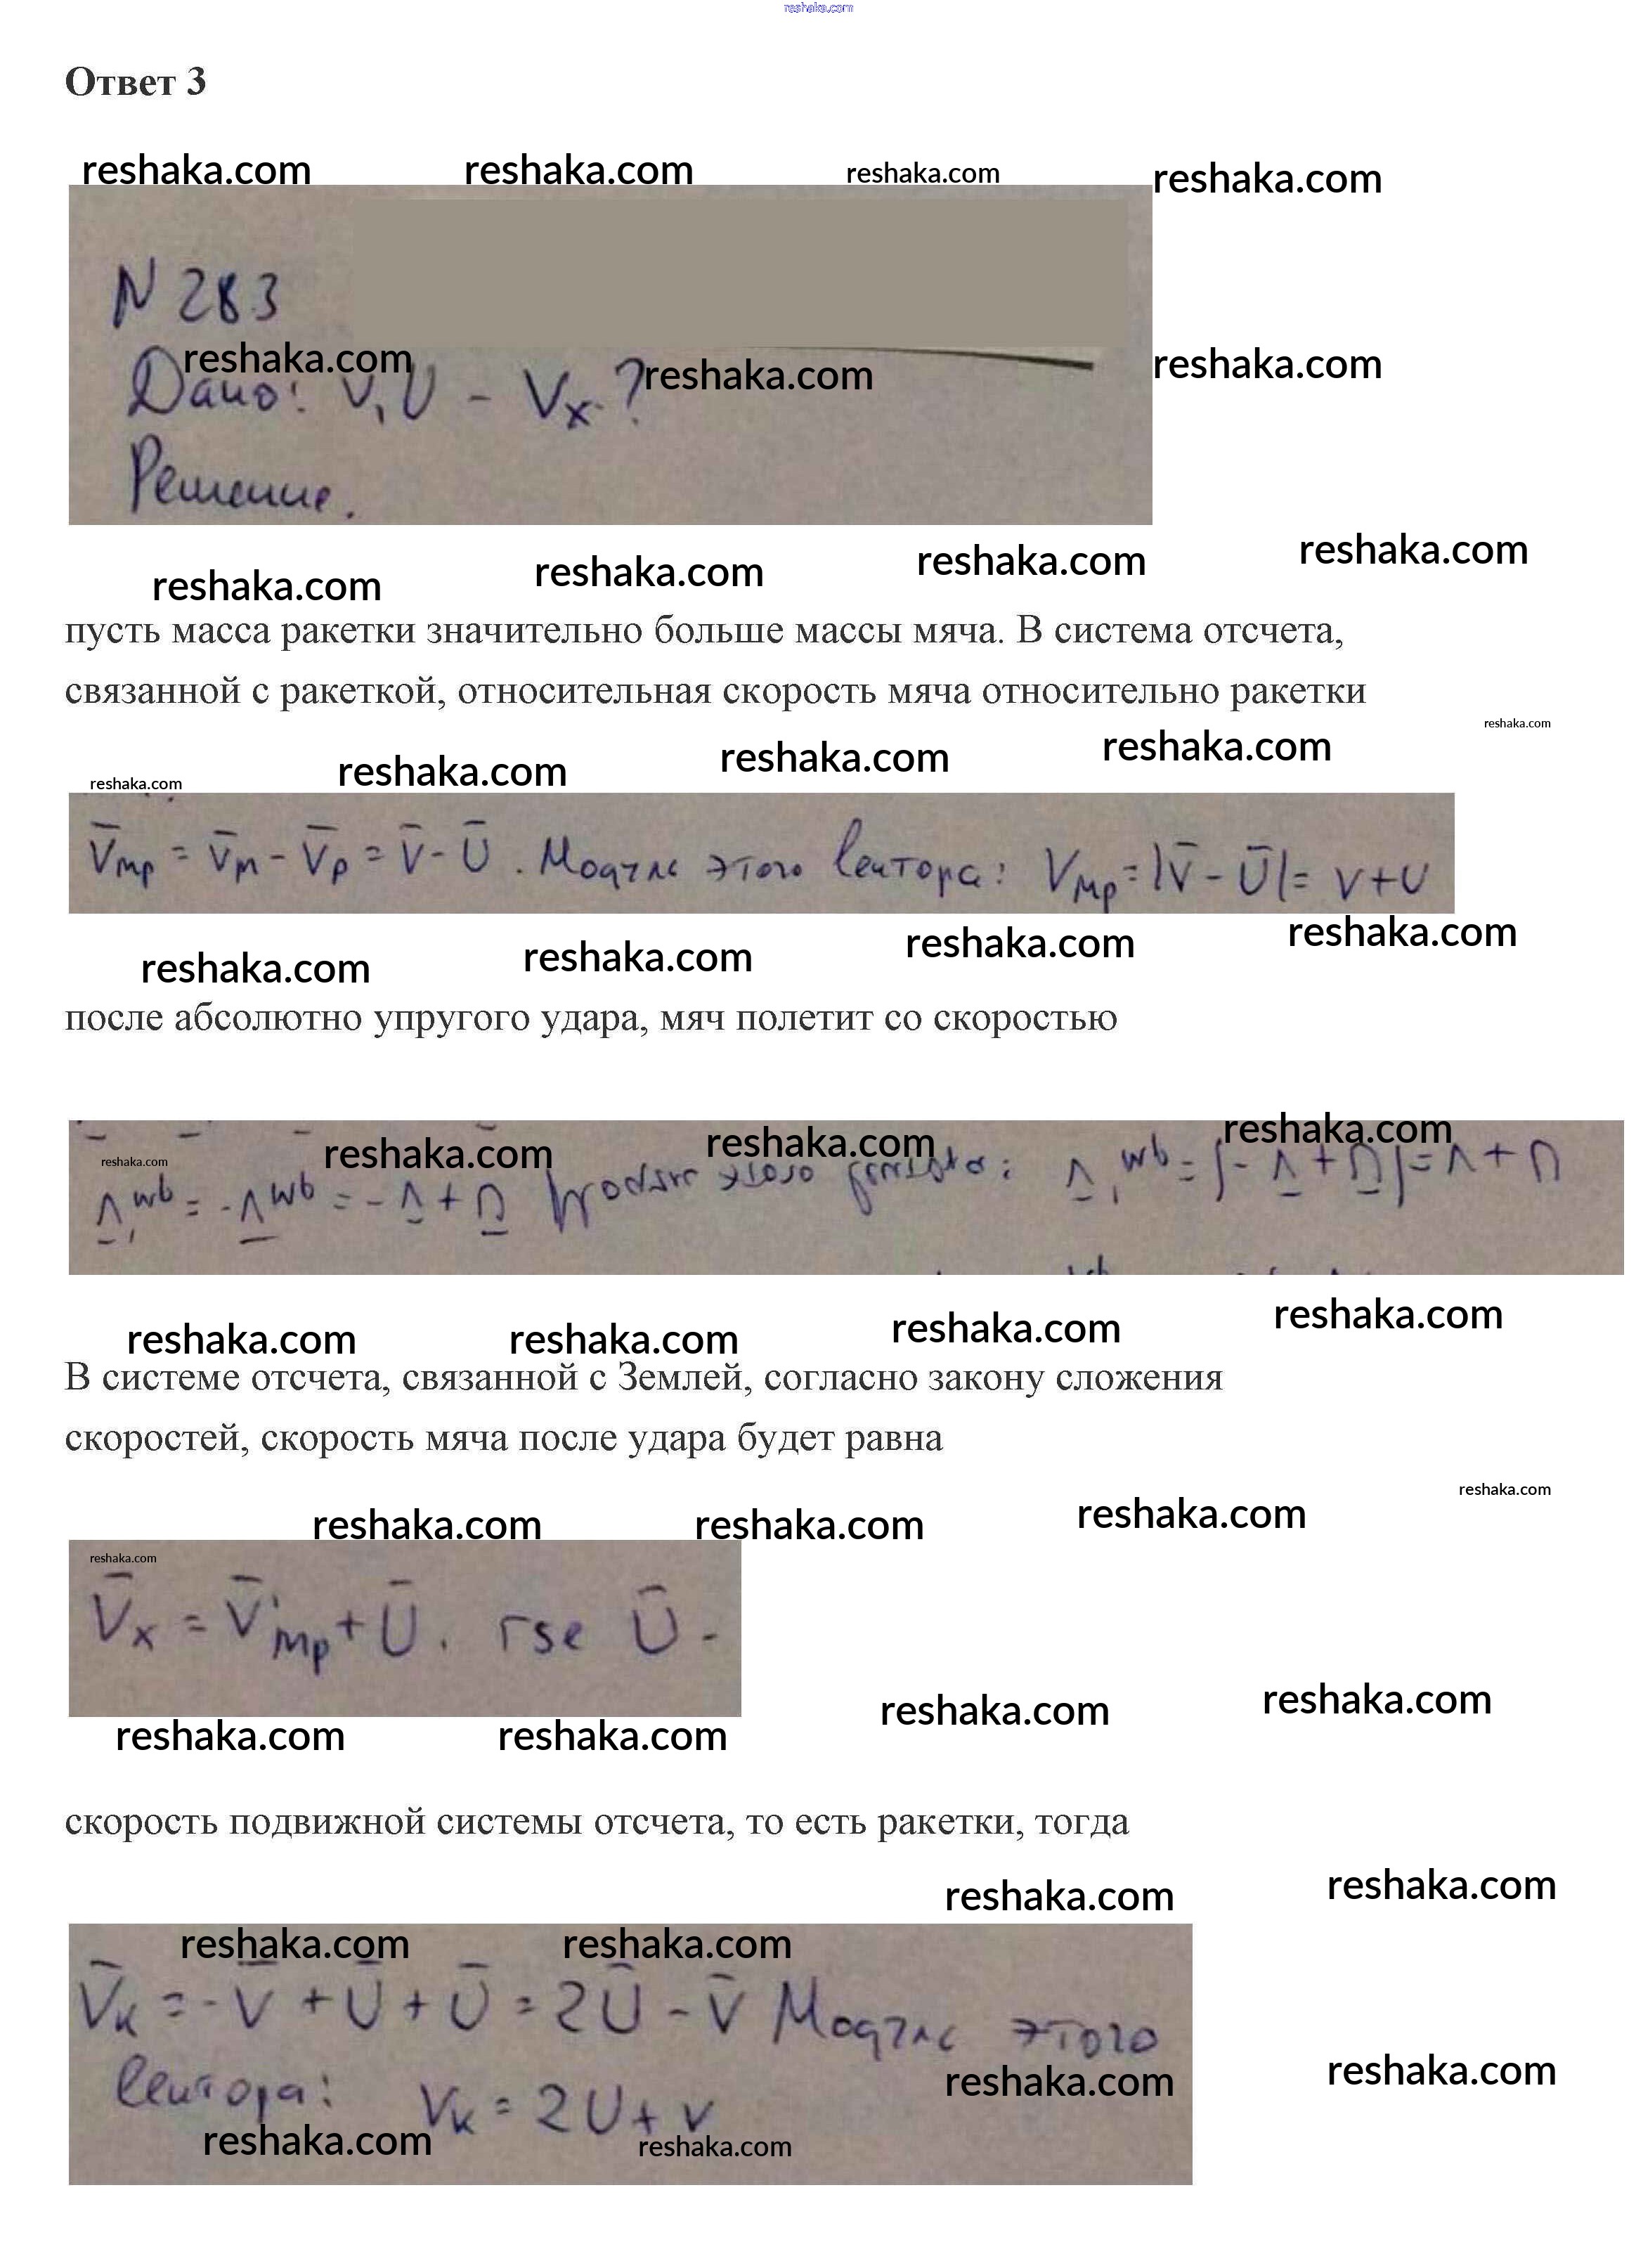 reshaka.com
Ответ 3
reshaka.com reshaka.com reshaka.com reshaka.com
N 283
reshaka.com reshaka.com reshaka.com
Дано: v, U - Vx - ?
Решение.
reshaka.com reshaka.com reshaka.com reshaka.com
пусть масса ракетки значительно больше массы мяча. В система отсчета,
связанной с ракеткой, относительная скорость мяча относительно ракетки
reshaka.com
reshaka.com reshaka.com reshaka.com reshaka.com
V̄мр = V̄м - V̄р = V̄ - Ū . Модуль этого вектора: Vмр = |V̄ - Ū| = v + U
reshaka.com reshaka.com reshaka.com reshaka.com
после абсолютно упругого удара, мяч полетит со скоростью
reshaka.com reshaka.com reshaka.com reshaka.com
V̄'мр = -V̄мр = -V̄ + Ū Модуль этого вектора: V̄'мр = |-V̄ + Ū| = v + U
reshaka.com reshaka.com reshaka.com reshaka.com
В системе отсчета, связанной с Землей, согласно закону сложения
скоростей, скорость мяча после удара будет равна
reshaka.com
reshaka.com reshaka.com reshaka.com
reshaka.com
V̄x = V̄'мр + Ū. где Ū -
reshaka.com reshaka.com reshaka.com reshaka.com
скорость подвижной системы отсчета, то есть ракетки, тогда
reshaka.com reshaka.com
reshaka.com reshaka.com
V̄к = -V̄ + Ū + Ū = 2Ū - V̄ Модуль этого
вектора: Vк = 2U + v
reshaka.com reshaka.com
reshaka.com reshaka.com